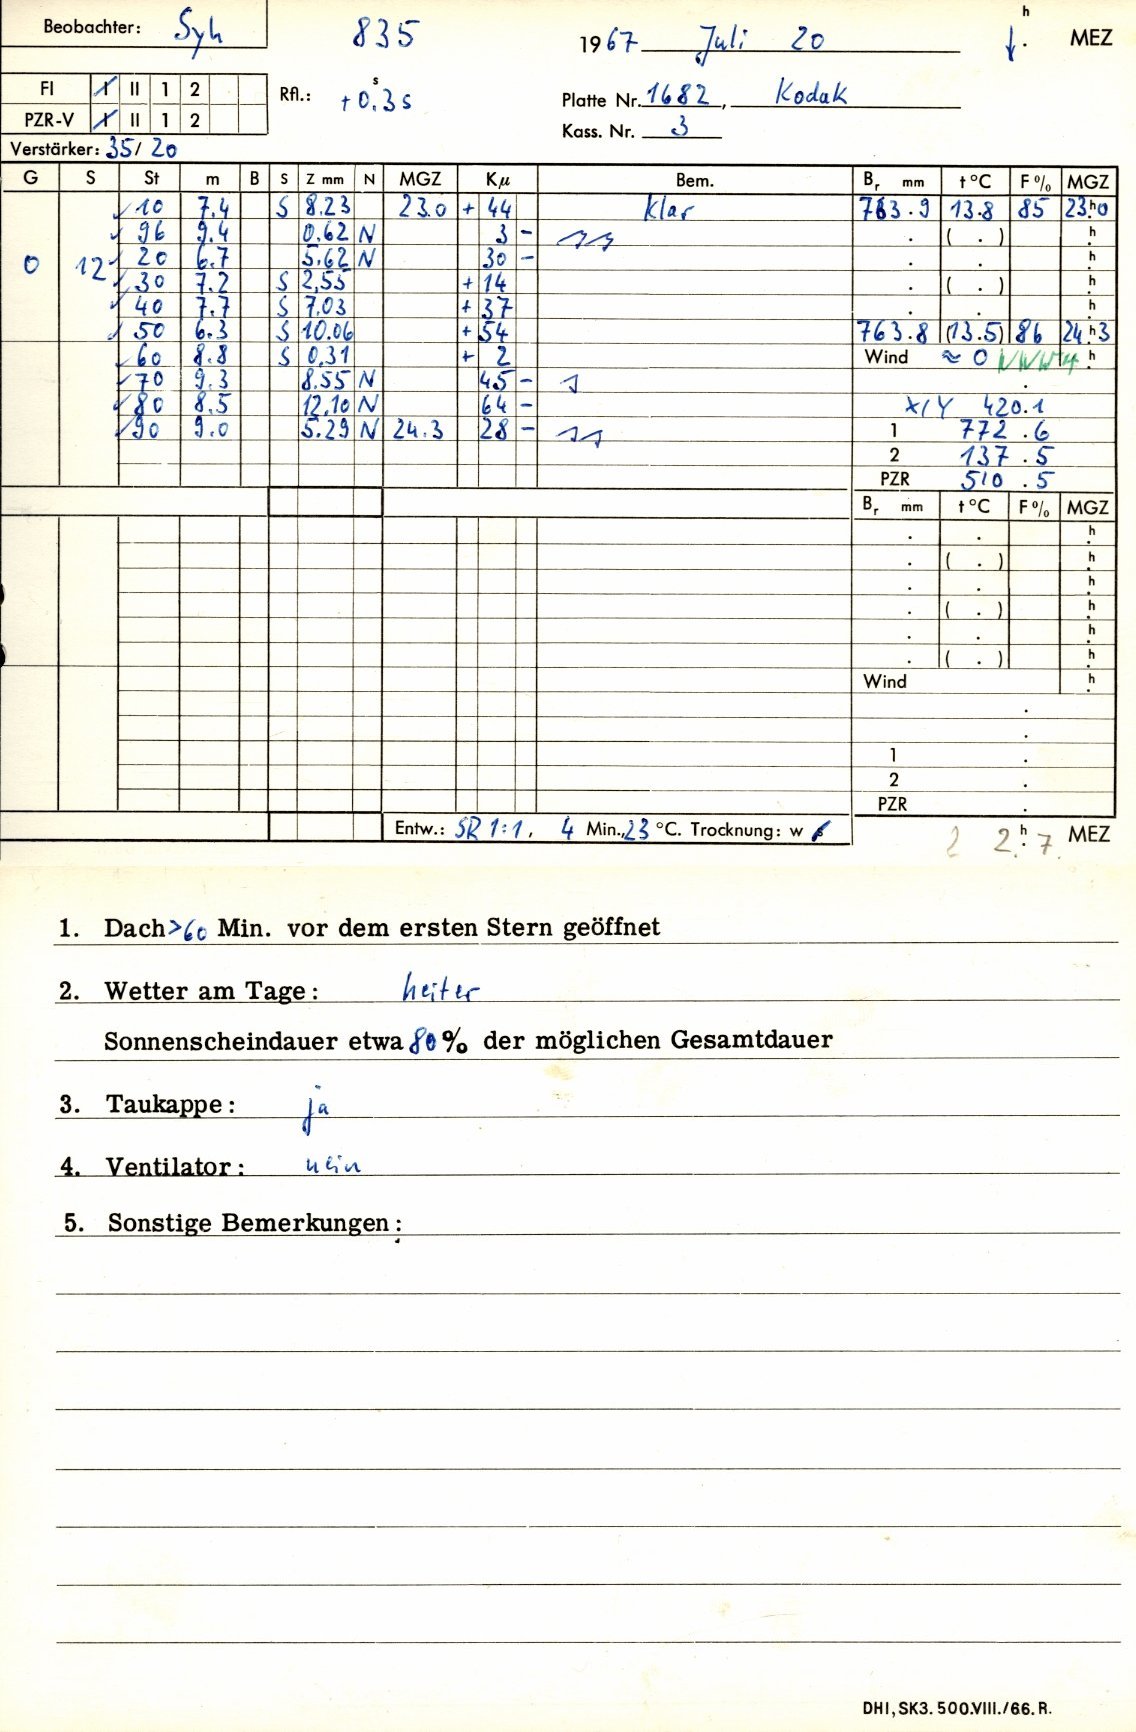 Beobachter: Syh 835 1967 Juli 20 h ↓. MEZ
FI I II 1 2 Rfl.: +0.3s Platte Nr. 1682, Kodak
PZR-V I II 1 2 Kass. Nr. 3
Verstärker: 35/20
G S St m B S Z mm N MGZ Kμ Bem. Br mm t°C F% MGZ
10 7.4 S 8.23 23.0 + 44 Klar 763.9 13.8 85 23h0
96 9.4 0.62 N 3 - . ( . ) h
0 12 20 6.7 5.62 N 30 - . . h
30 7.2 S 2.55 + 14 . ( . ) h
40 7.7 S 7.03 + 37 . . h
50 6.3 S 10.06 + 54 763.8 (13.5) 86 24h3
60 8.8 S 0.31 + 2 Wind ≈ 0 h
70 9.3 8.55 N 45 - .
80 8.5 12.10 N 64 - X/Y 420.1
90 9.0 5.29 N 24.3 28 - 1 772.6
2 137.5
PZR 510.5
Br mm t°C F% MGZ
. . h
. ( . ) h
. . h
. ( . ) h
. . h
. ( . ) h
Wind h
.
.
1 .
2 .
PZR .
Entw.: SR 1:1, 4 Min., 23 °C. Trocknung: w 2h.7 MEZ
1. Dach >60 Min. vor dem ersten Stern geöffnet
2. Wetter am Tage: heiter
Sonnenscheindauer etwa 80% der möglichen Gesamtdauer
3. Taukappe: ja
4. Ventilator: nein
5. Sonstige Bemerkungen:
DHI, SK3. 500.VIII./66. R.